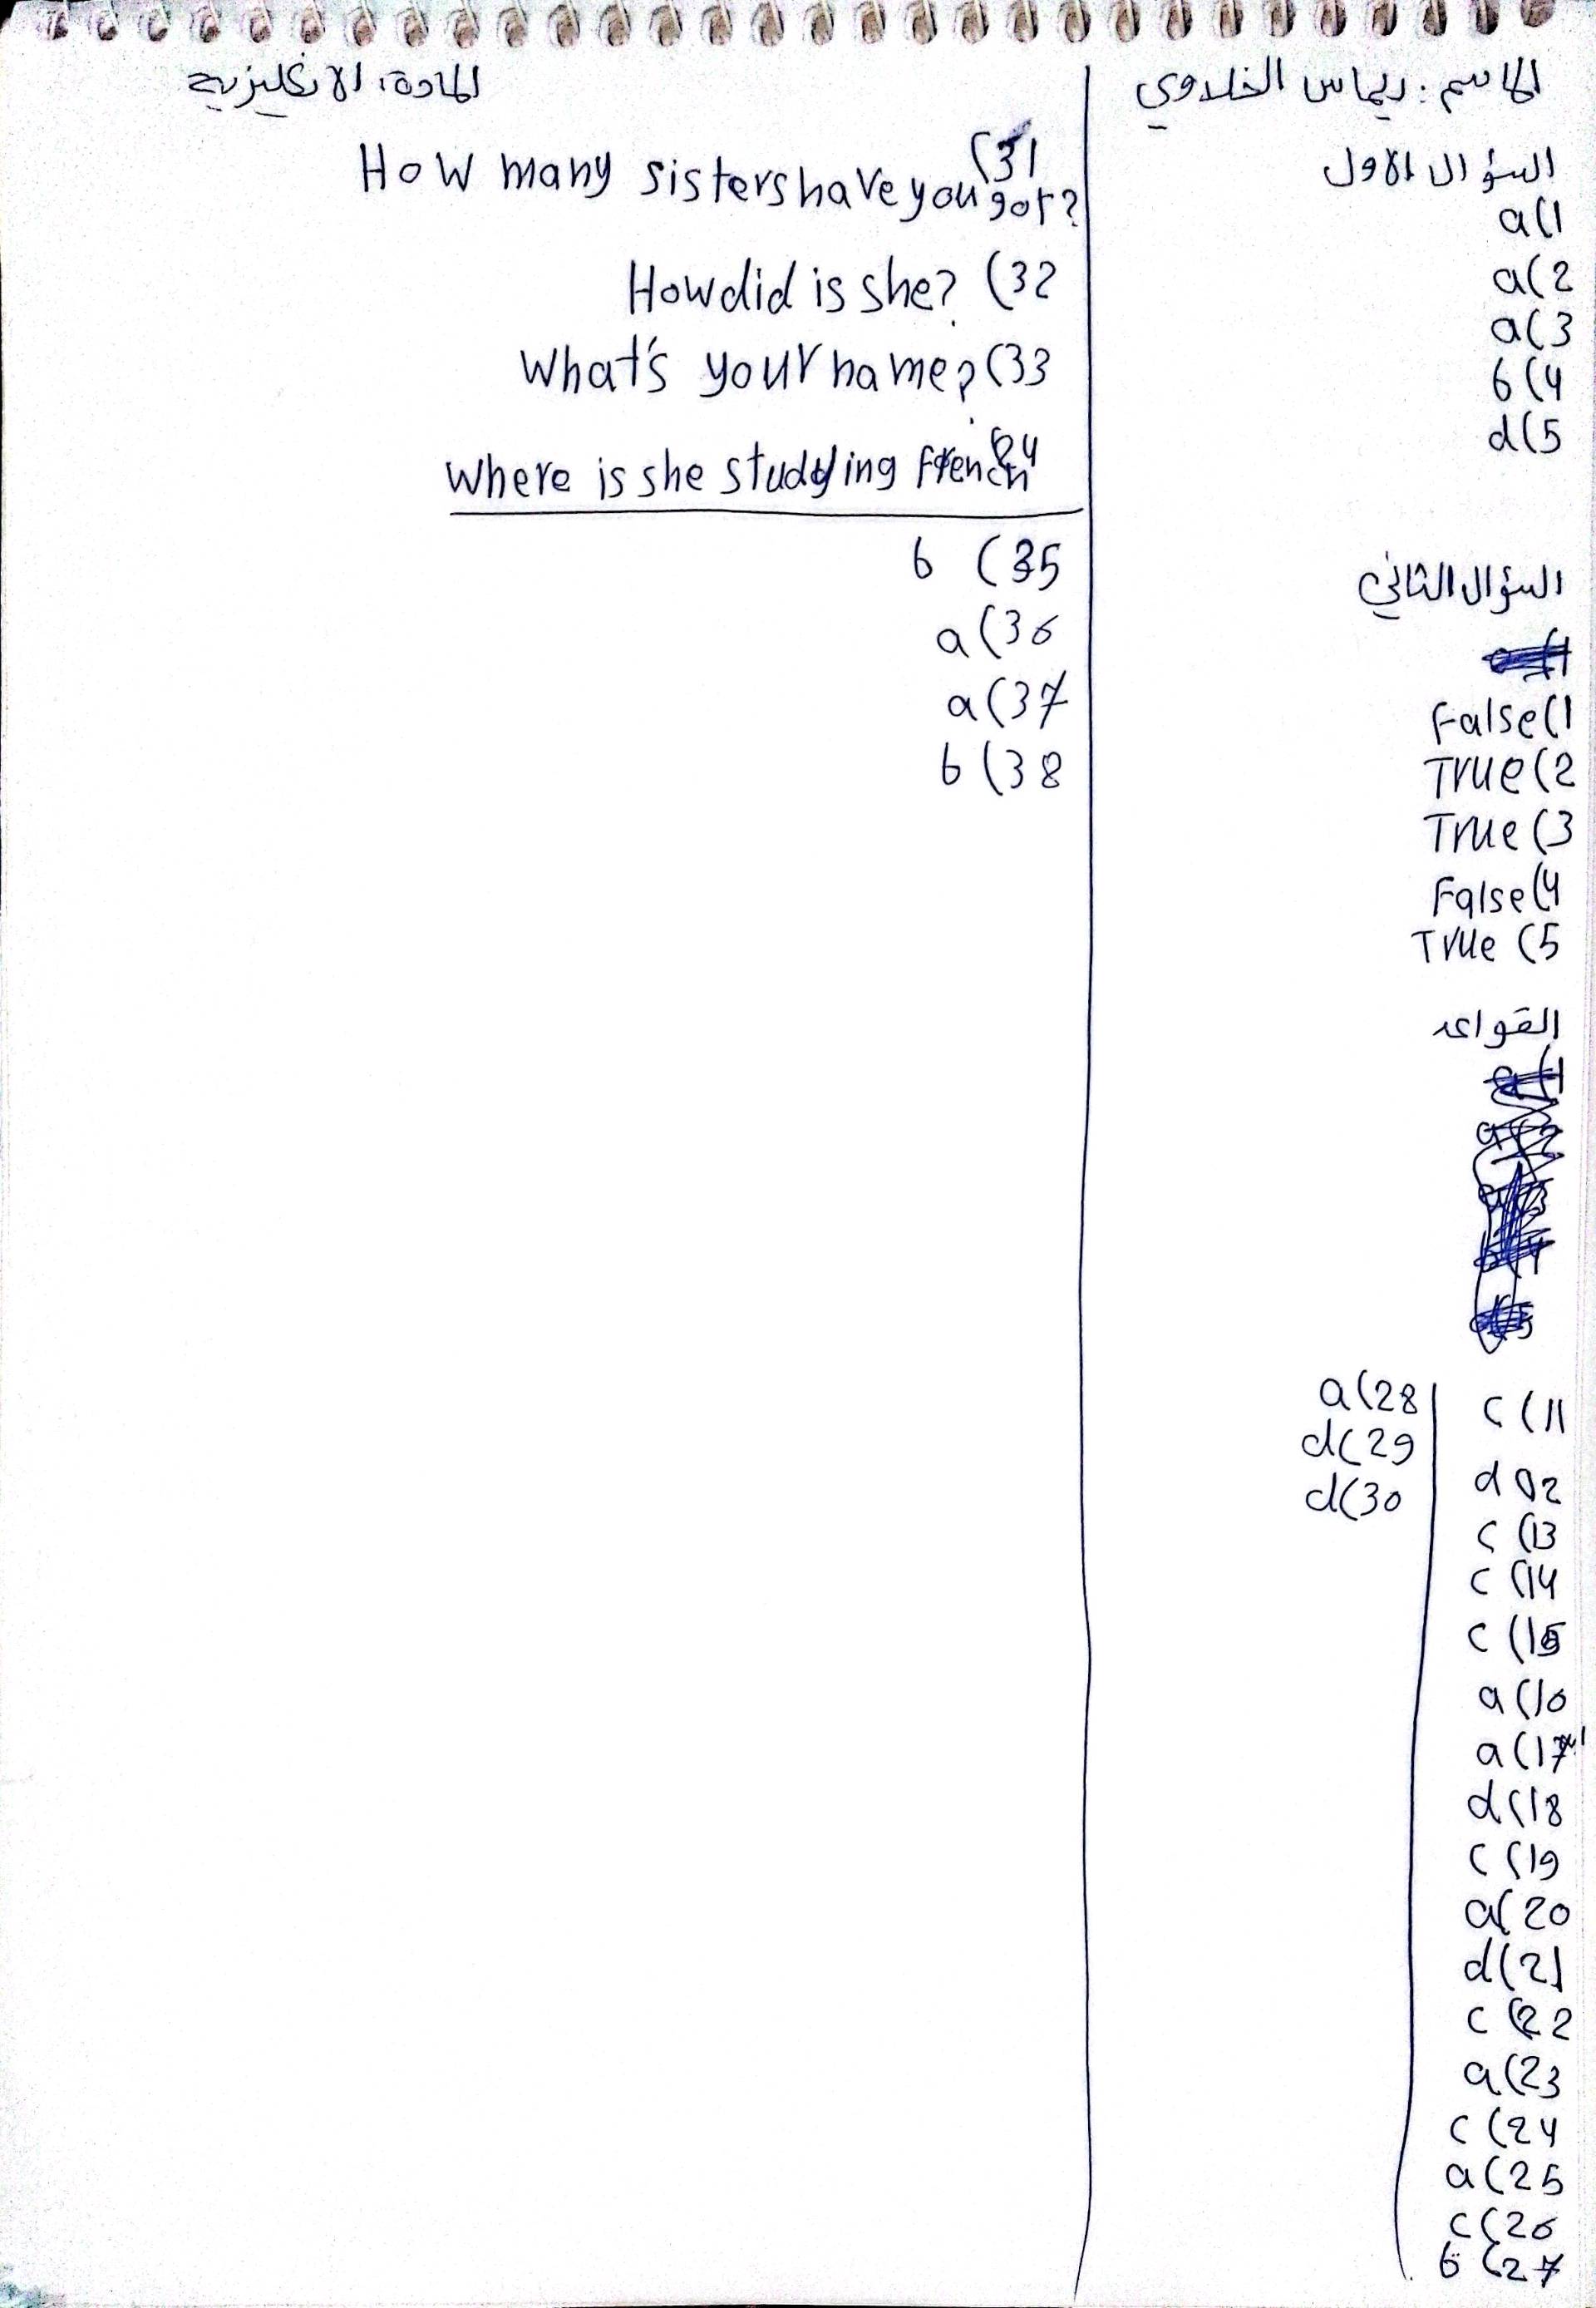 الاسم: ريماس الخلاوي
السؤال الاول
a(1
a(2
a(3
b(4
d(5
السؤال الثاني
False(1
True(2
True(3
False(4
True(5
القواعد
c(11
d(12
c(13
c(14
c(15
a(16
a(17
d(18
c(19
a(20
d(21
c(22
a(23
c(24
a(25
c(26
b(27
a(28
d(29
d(30
المادة: الانكليزية
How many sisters have you got? (31
How did is she? (32
What's your name? (33
Where is she studying French (34
b (35
a(36
a(37
b(38